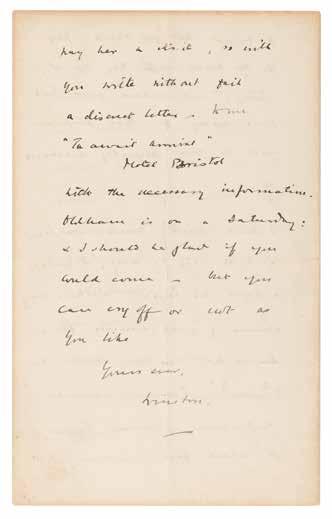 pay her a visit, so will
you write without fail
a discreet letter to me
"To await arrival"
Hotel Bristol
with the necessary information.
Oldham is on a Saturday:
& I should be glad if you
would come - but you
can cry off or not as
you like
Yours ever,
Winston.